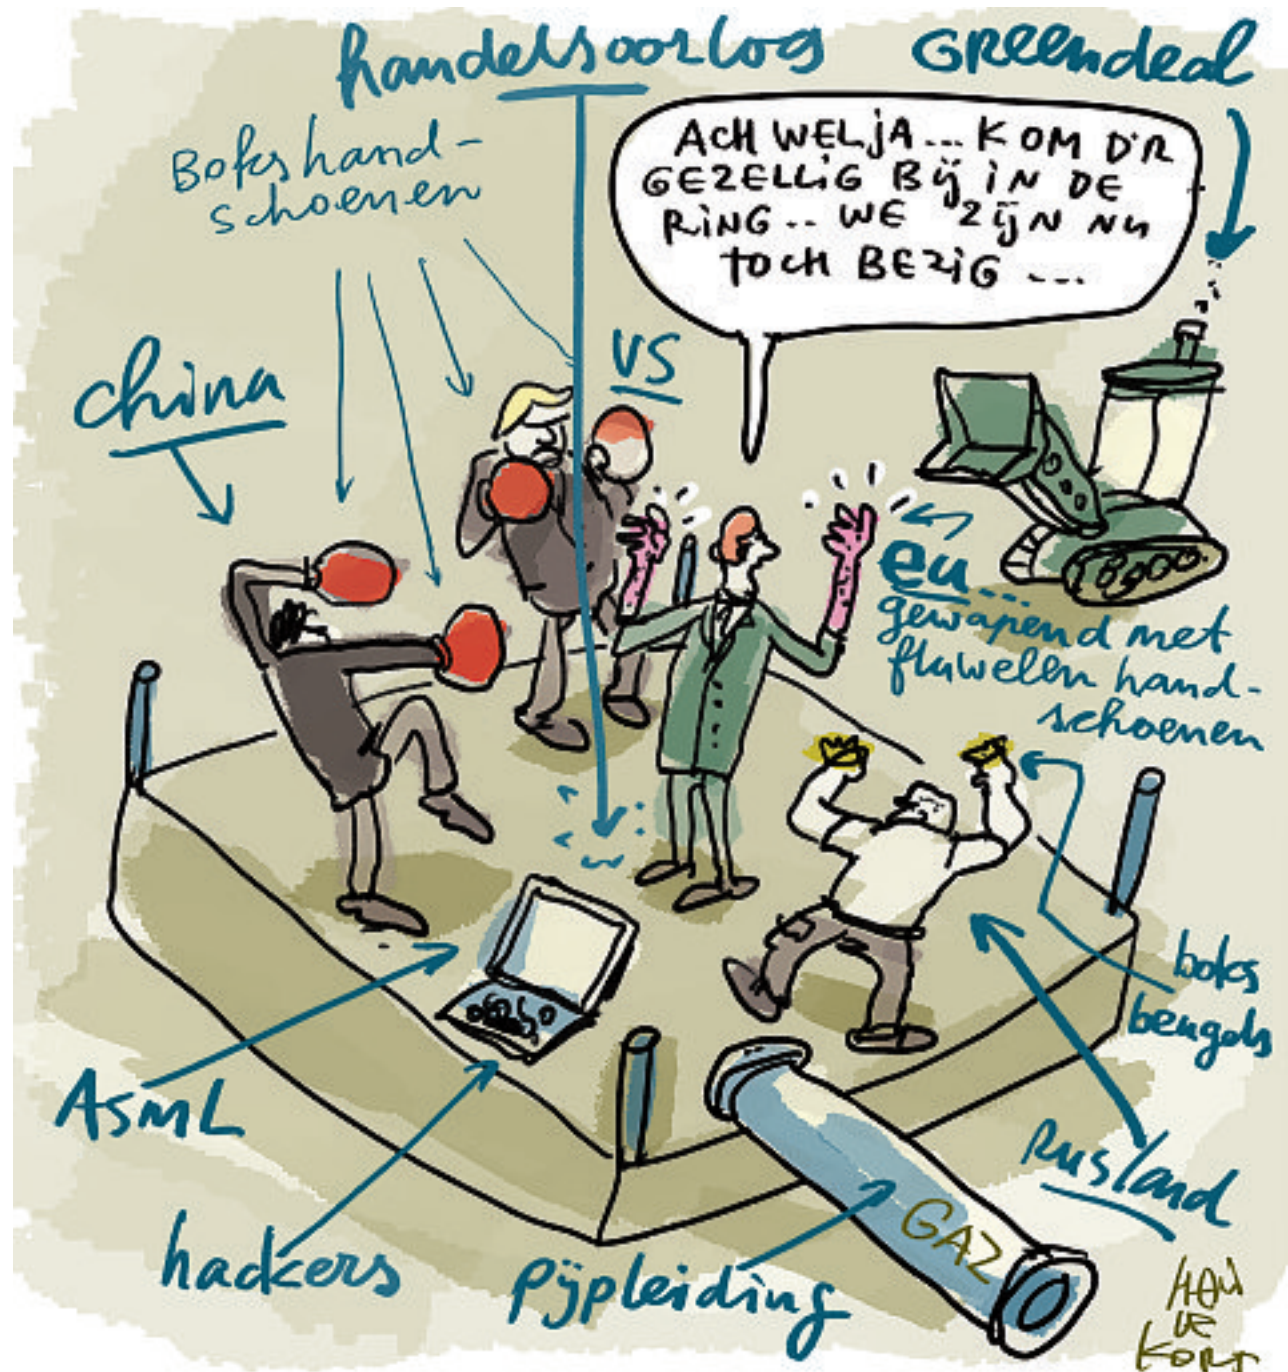 handelsoorlog
Greendeal
Bokshand-
schoenen
ACH WELJA... KOM D'R
GEZELLIG BIJ IN DE
RING.. WE ZIJN NU
TOCH BEZIG ...
VS
china
eu...
gewapend met
fluwelen hand-
schoenen
boks
beugels
ASML
Rusland
hackers
pijpleiding
GAZ
HAJO
DE
KORT